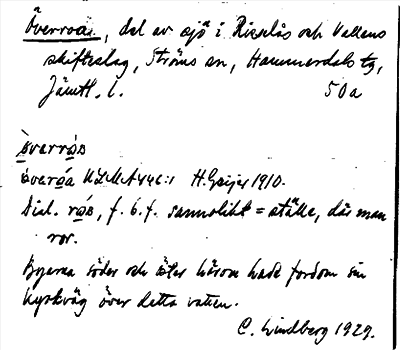 Överroa, del av sjö i Risselås och Vallens
skifteslag, Ströms sn, Hammerdals tg,
Jämtl. l. 50a
överrɷ̀n
överɷ́a ULMA 446:1 H. Geijer 1910.
Dial. rɷ, f. b.f. sannolikt = ställe, där man
ror.
Byarna söder och öster härom hade fordom sin
kyrkväg över detta vatten.
C. Lindberg 1929.